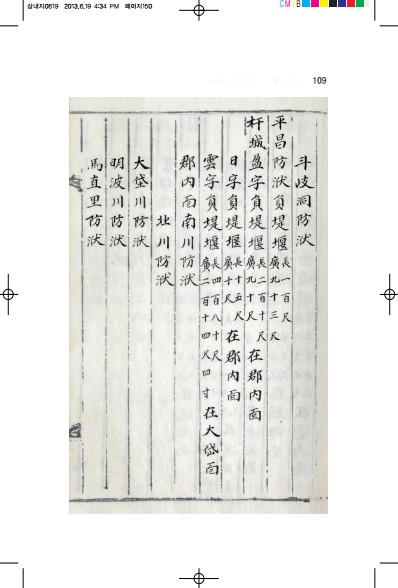 삼내지0619 2013.6.19 4:34 PM 페이지150
CM
109
斗岐洞防洑
平昌防洑負堤堰 長一百尺 廣九十三尺
杆城盈字負堤堰 長二百十尺 廣九十尺 在郡內面
日字負堤堰 長十五尺 廣十尺 在郡內面
雲字負堤堰 長四百八十尺 廣二百十四尺四寸 在大岱面
郡內面南川防洑
北川防洑
大岱川防洑
明波川防洑
馬直里防洑